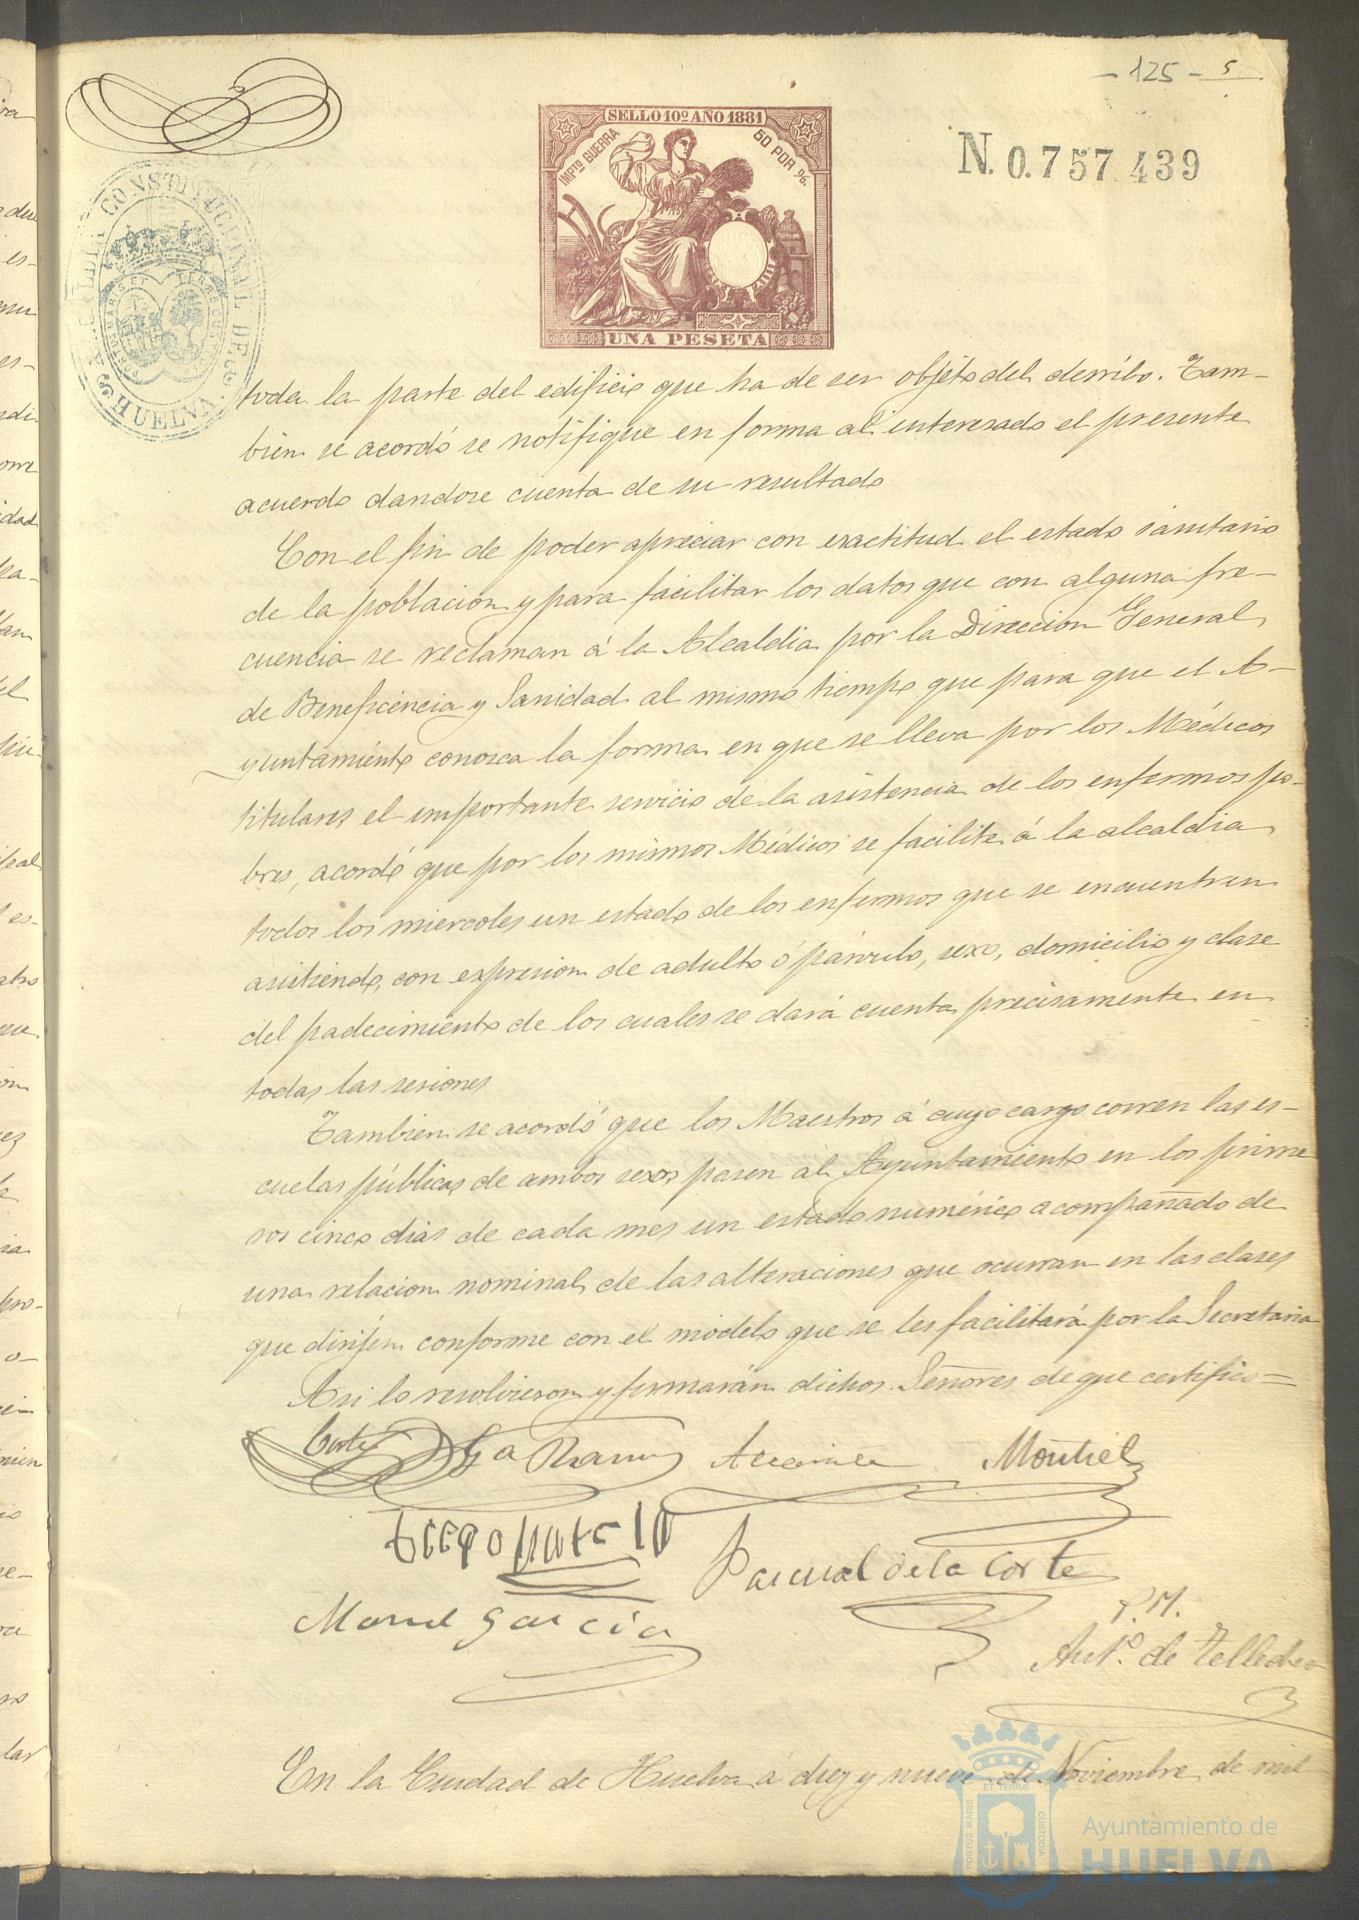 - 125 - 5
SELLO 10º AÑO 1881
IMPTO GUERRA
50 POR %.
UNA PESETA
N. 0.757.439
ALCALDIA CONSTITUCIONAL DE HUELVA
toda la parte del edificio que ha de ser objeto del derribo. Tam-
bien se acordó se notifique en forma al interesado el presente
acuerdo dandose cuenta de su resultado
Con el fin de poder apreciar con exactitud el estado sanitario
de la poblacion y para facilitar los datos que con alguna fre-
cuencia se reclaman á la Alcaldia por la Direccion General
de Beneficencia y Sanidad al mismo tiempo que para que el A-
yuntamiento conozca la forma en que se lleva por los Médicos
titulares el importante servicio de la asistencia de los enfermos po-
bres, acordó que por los mismos Médicos se facilite á la alcaldia
todos los miercoles un estado de los enfermos que se encuentren
asistiendo, con expresion de adulto ó párvulo, sexo, domicilio y clase
del padecimiento de los cuales se dará cuenta precisamente en
todas las sesiones
Tambien se acordó que los Maestros á cuyo cargo corren las es-
cuelas públicas de ambos sexos pasen al Ayuntamiento en los prime
ros cinco dias de cada mes un estado numérico acompañado de
una relacion nominal de las alteraciones que ocurran en las clases
que dirijen conforme con el modelo que se les facilitará por la Secretaria
Asi lo resolvieron y firmarán dichos Señores de que certifico=
Cortes Ga Ramos Montiel
Pascual de la Corte
Manuel Garcia
P.M.
Antº. de
En la Ciudad de Huelva á diez y nueve de Noviembre de mil
PORTUS MARIS ET TERRÆ CUSTODIA
Ayuntamiento de
HUELVA